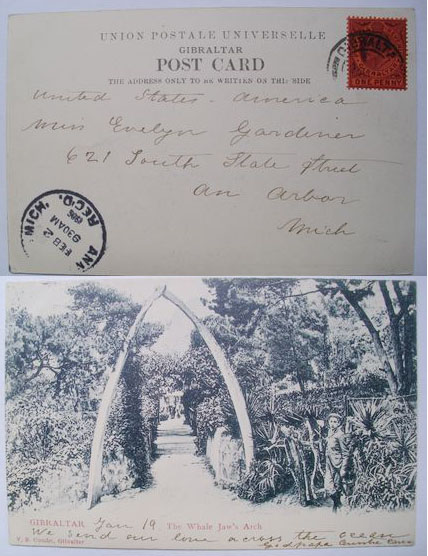 UNION POSTALE UNIVERSELLE
GIBRALTAR
POST CARD
THE ADDRESS ONLY TO BE WRITTEN ON THIS SIDE
GIBRALTAR
ONE PENNY
United States. America
Miss Evelyn Gardiner
621 South State Street
An Arbor
Mich
ANN MICH. REC'D.
FEB 2
930AM
GIBRALTAR Jan 19 The Whale Jaw's Arch
We send our love across the ocean
V. B. Cumbo, Gibraltar